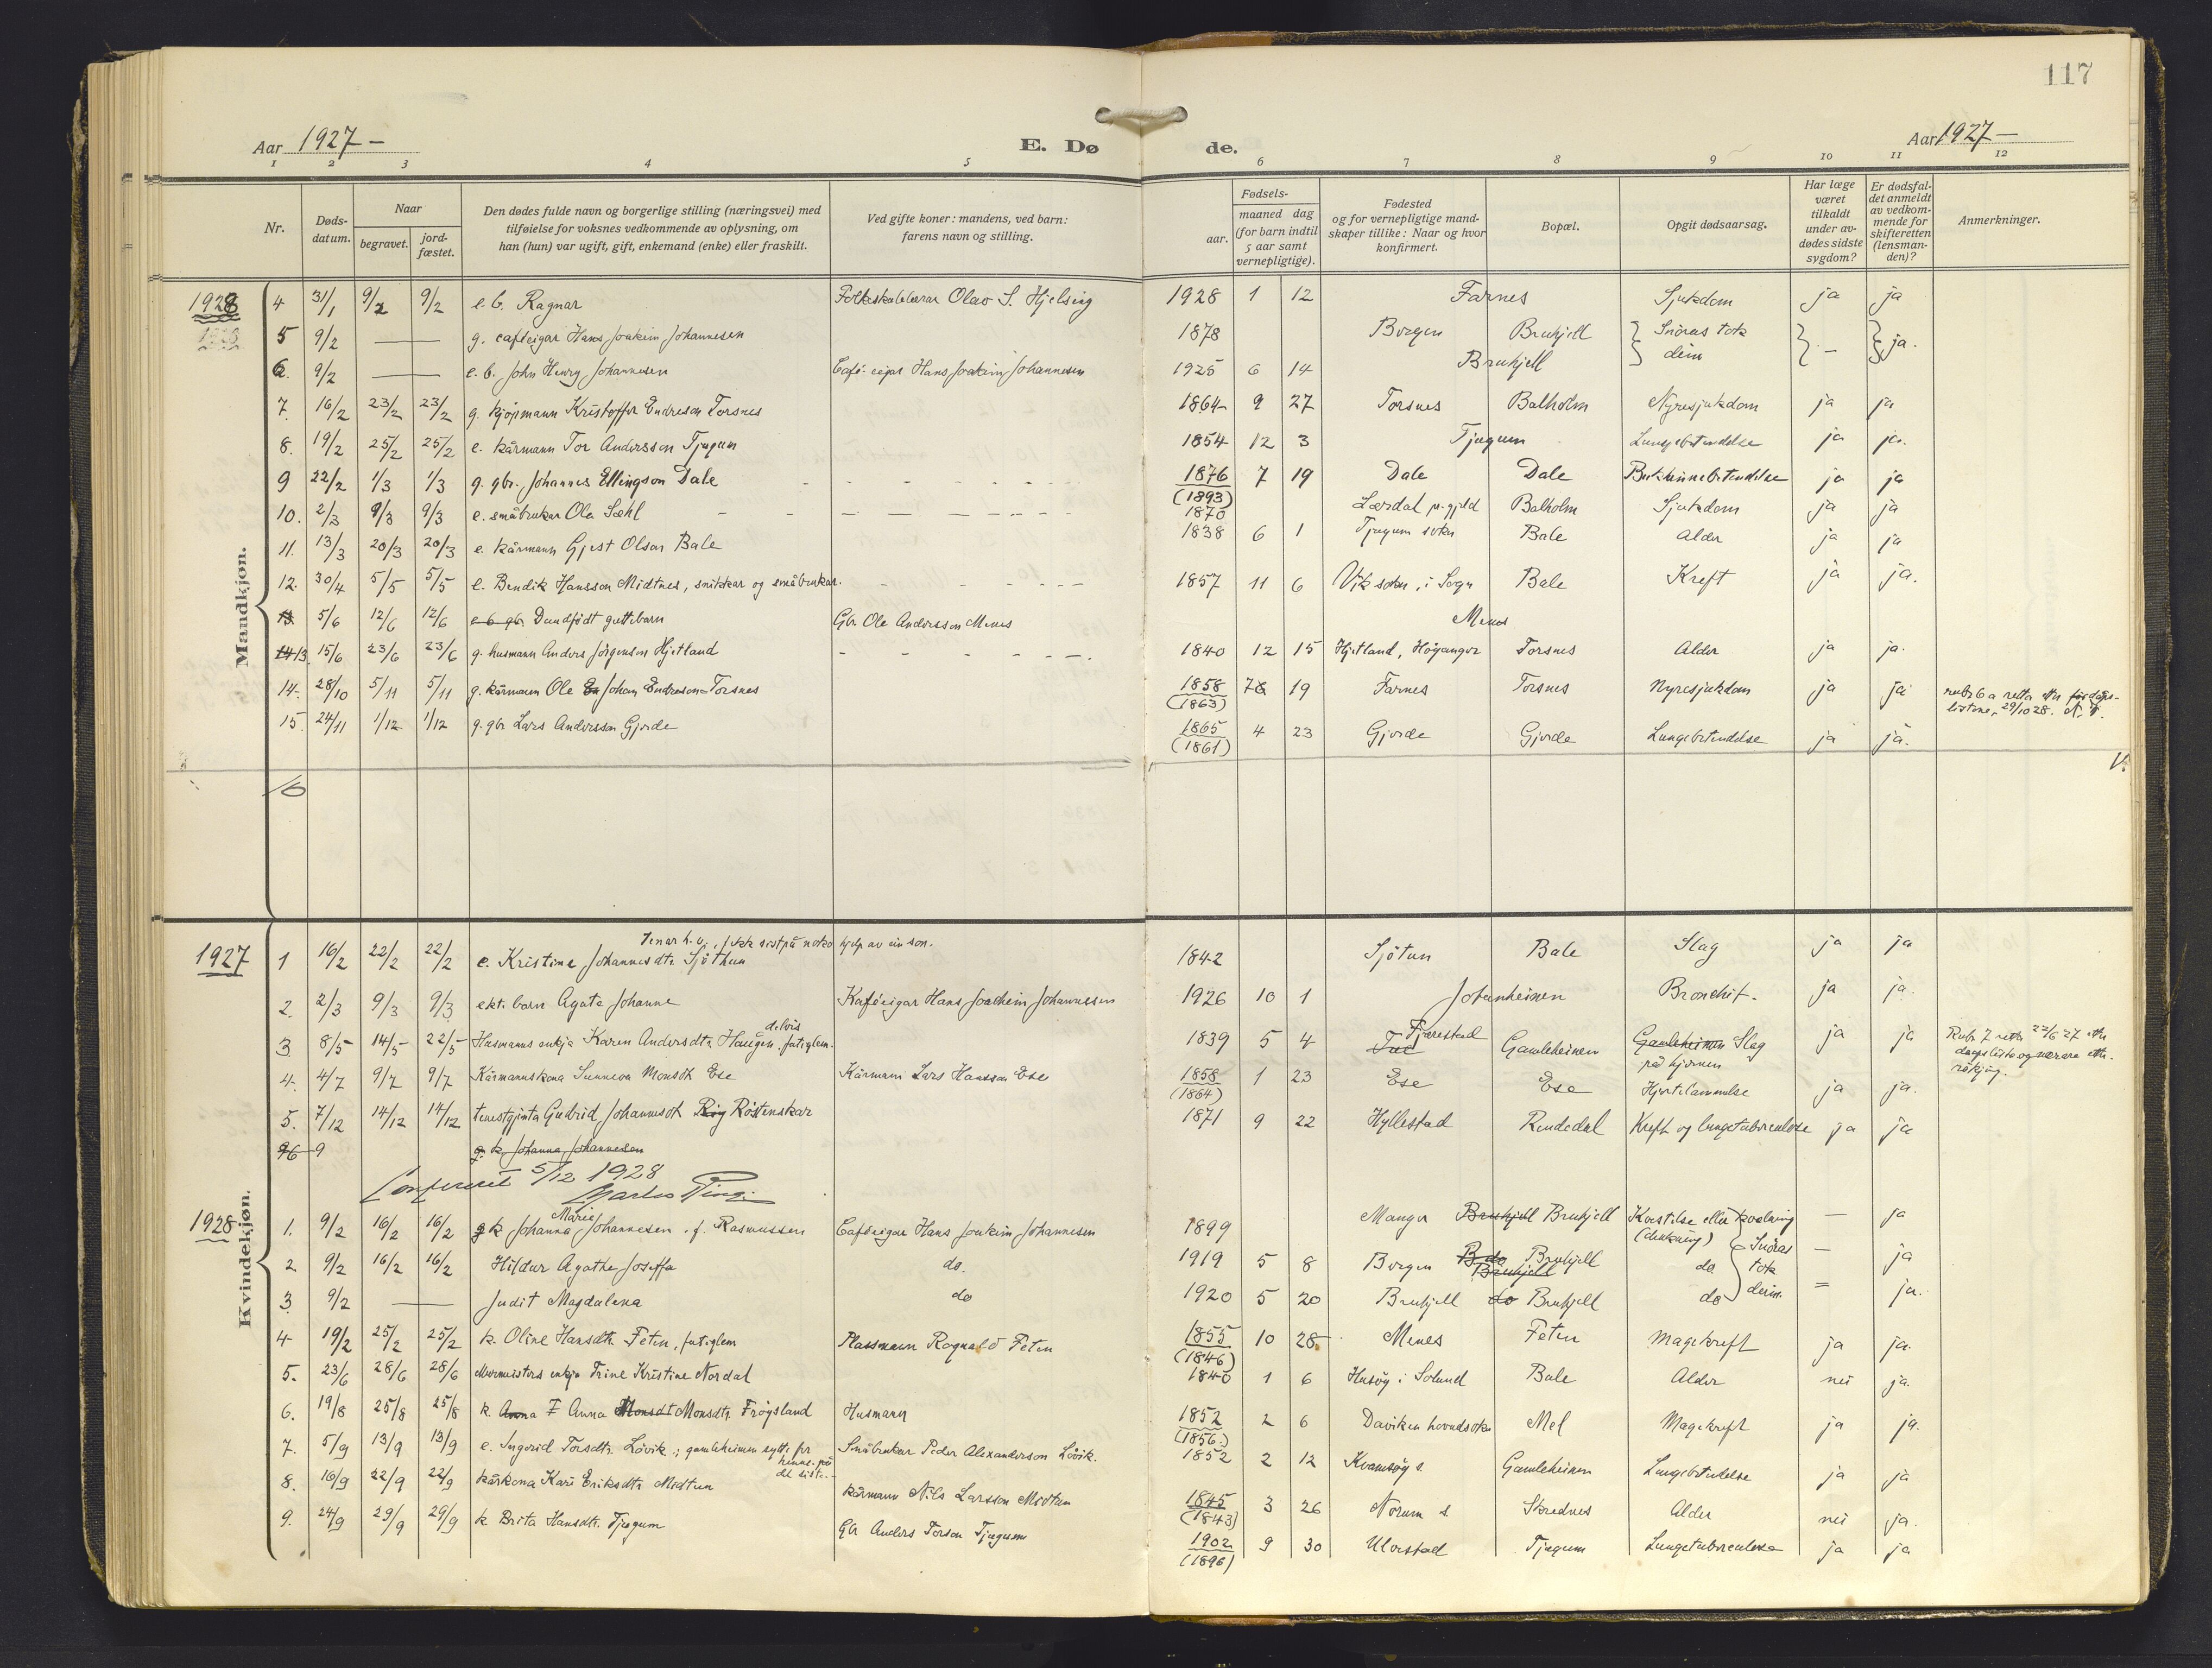 117
Aar 1927 –
E. Døde.
Aar 1927 –
1 2 3 4 5 6 7 8 9 10 11 12
Nr.
Døds-
datum.
Naar
begravet.
jord-
fæstet.
Den dødes fulde navn og borgerlige stilling (næringsvei) med
tilføielse for voksnes vedkommende av oplysning, om
han (hun) var ugift, gift, enkemand (enke) eller fraskilt.
Ved gifte koner: mandens, ved barn:
farens navn og stilling.
Fødsels-
aar.
maaned dag
(for barn indtil
5 aar samt
vernepligtige).
Fødested
og for vernepligtige mand-
skaper tillike: Naar og hvor
konfirmert.
Bopæl.
Opgit dødsaarsag.
Har læge
været
tilkaldt
under av-
dødes sidste
sygdom?
Er dødsfal-
det anmeldt
av vedkom-
mende for
skifteretten
(lensman-
den)?
Anmerkninger.
Mandkjøn.
1928
4 31/1 9/2 9/2 e. b. Ragnar Folkeskulelærar Olav S. Hjelsing 1928 1 12 Farnes Sjukdom ja ja
5 9/2 — g. cafeeigar Hans Joakim Johannesen 1878 Borgen Bruhjell Snöras tok ja.
6. 9/2 — e. b. John Henry Johannesen Café-eigar Hans Joakim Johannesen 1925 6 14 Bruhjell deim –
7. 16/2 23/2 23/2 g. kjöpmann Kristoffer Endreson Torsnes 1864 9 27 Torsnes Balholm Nyresjukdom ja ja
8. 19/2 25/2 25/2 e. kårmann Tor Andersson Tjugum 1854 12 3 Tjugum Lungebetendelse ja ja.
9 22/2 1/3 1/3 g. gbr. Johannes Ellingson Dale 1876 (1893) 7 19 Dale Dale ja ja
10. 2/3 9/3 9/3 e. småbrukar Ola Sæhl 1870 Lærdal p.gjeld Balholm Sjukdom ja ja
11. 13/3 20/3 20/3 e. kårmann Gjest Olson Bale 1838 6 1 Tjugum sokn Bale Alder ja ja
12. 30/4 5/5 5/5 e. Bendik Hansson Midtnes, snikkar og småbrukar. 1857 11 6 Vik sokn, i Sogn Bale Kreft ja ja.
13. 5/6 12/6 12/6 e b gb. Daudfödt guttebarn Gbr. Ole Andersson Menes Menes
14 13. 15/6 23/6 23/6 g. husmann Anders Jörgenson Hjetland 1840 12 15 Hjetland, Höyanger Torsnes Alder ja ja.
14. 28/10 5/11 5/11 g. kårmann Ole En Johan Endreson Torsnes 1858 (1863) 7 19 Farnes Torsnes Nyresjukdom ja ja
rubr 6 a retta etter
listene, 29/10 28.
15. 24/11 1/12 1/12 g. gbr Lars Andersson Gjerde 1865 (1861) 4 23 Gjerde Gjerde Lungebetendelse ja ja.
16
Kvindekjøn.
Tenar h. v., fekk sist på noko hjelp av ein son.
1927
1 16/2 22/2 22/2 e. Kristine Johannesdtr. Sjöthun 1842 Sjötun Bale Slag ja ja
2. 2/3 9/3 9/3 ekt. barn Agata Johanne Kaféeigar Hans Joachim Johannessen 1926 10 1 Jotunheimen Bronchit. ja ja.
3. 8/5 14/5 22/5 Husmanns enkja Karen Andersdtr. Haugen, delvis fatiglem. 1839 5 4 Fjærestad Gamleheimen Gamleheimen Slag på hjernen ja ja
Rubr 7 retta 22/6 27 etter
4. 4/7 9/7 9/7 Kårmannskona Sunneva Monsdt Ese Kårmann Lars Hansson Ese 1858 (1864) 1 23 Ese Ese Hjertelammelse ja ja.
5. 7/12 14/12 14/12 tenestgjenta Gudrid Johannesdt Röy Röstenskar 1871 9 22 Hyllestad Rendedal Kreft og lungetuberculose ja ja
6 9 g. k. Johanna Johannesen
Conferert 5/12 1928
1928
1. 9/2 16/2 16/2 g k Johanna Marie Johannesen, f. Rasmussen Caféeigar Hans Joakim Johannesen 1899 Manger Bruhjell Bruhjell Kvestelse eller kvelning – ja
2. 9/2 16/2 16/2 Hildur Agathe Joseffa do. 1919 5 8 Borgen Bruhjell do Snöras tok deim. – ja
3. 9/2 — Judit Magdalena do 1920 5 20 Bruhjell do Bruhjell do = ja.
4 19/2 25/2 25/2 k. Oline Hansdtr. Feten, fatiglem Plassmann Rognald Feten 1855 (1846) 10 28 Menes Feten Magekreft ja ja.
5. 23/6 28/6 28/6 Murmeisters enkja Trine Kristine Nordal 1840 1 6 Husöy i Solund Bale Alder nei ja.
6. 19/8 25/8 25/8 k. Anna F Anna Monsdt Monsdtr. Fröysland Husmann 1852 (1856.) 2 6 Daviken hovudsokn Mel Magekreft ja ja.
7. 5/9 13/9 13/9 e. Ingerid Torsdtr. Lövik; gamleheimen sytte for henne på det siste. Småbrukar Peder Alexanderson Lövik. 1852 2 12 Kvamsöy s. Gamleheimen Lungebetendelse ja ja
8. 16/9 22/9 22/9 kårkona Kari Eriksdtr. Midtun kårmann Nils Larsson Midtun 1845 (1843) 3 26 Norum s. Skrednes Alder nei ja.
9. 24/9 29/9 29/9 k Brita Hansdtr. Tjugum Gbr Anders Torson Tjugum 1902 (1896) 9 30 Ulvestad Tjugum Lungetuberculose ja ja